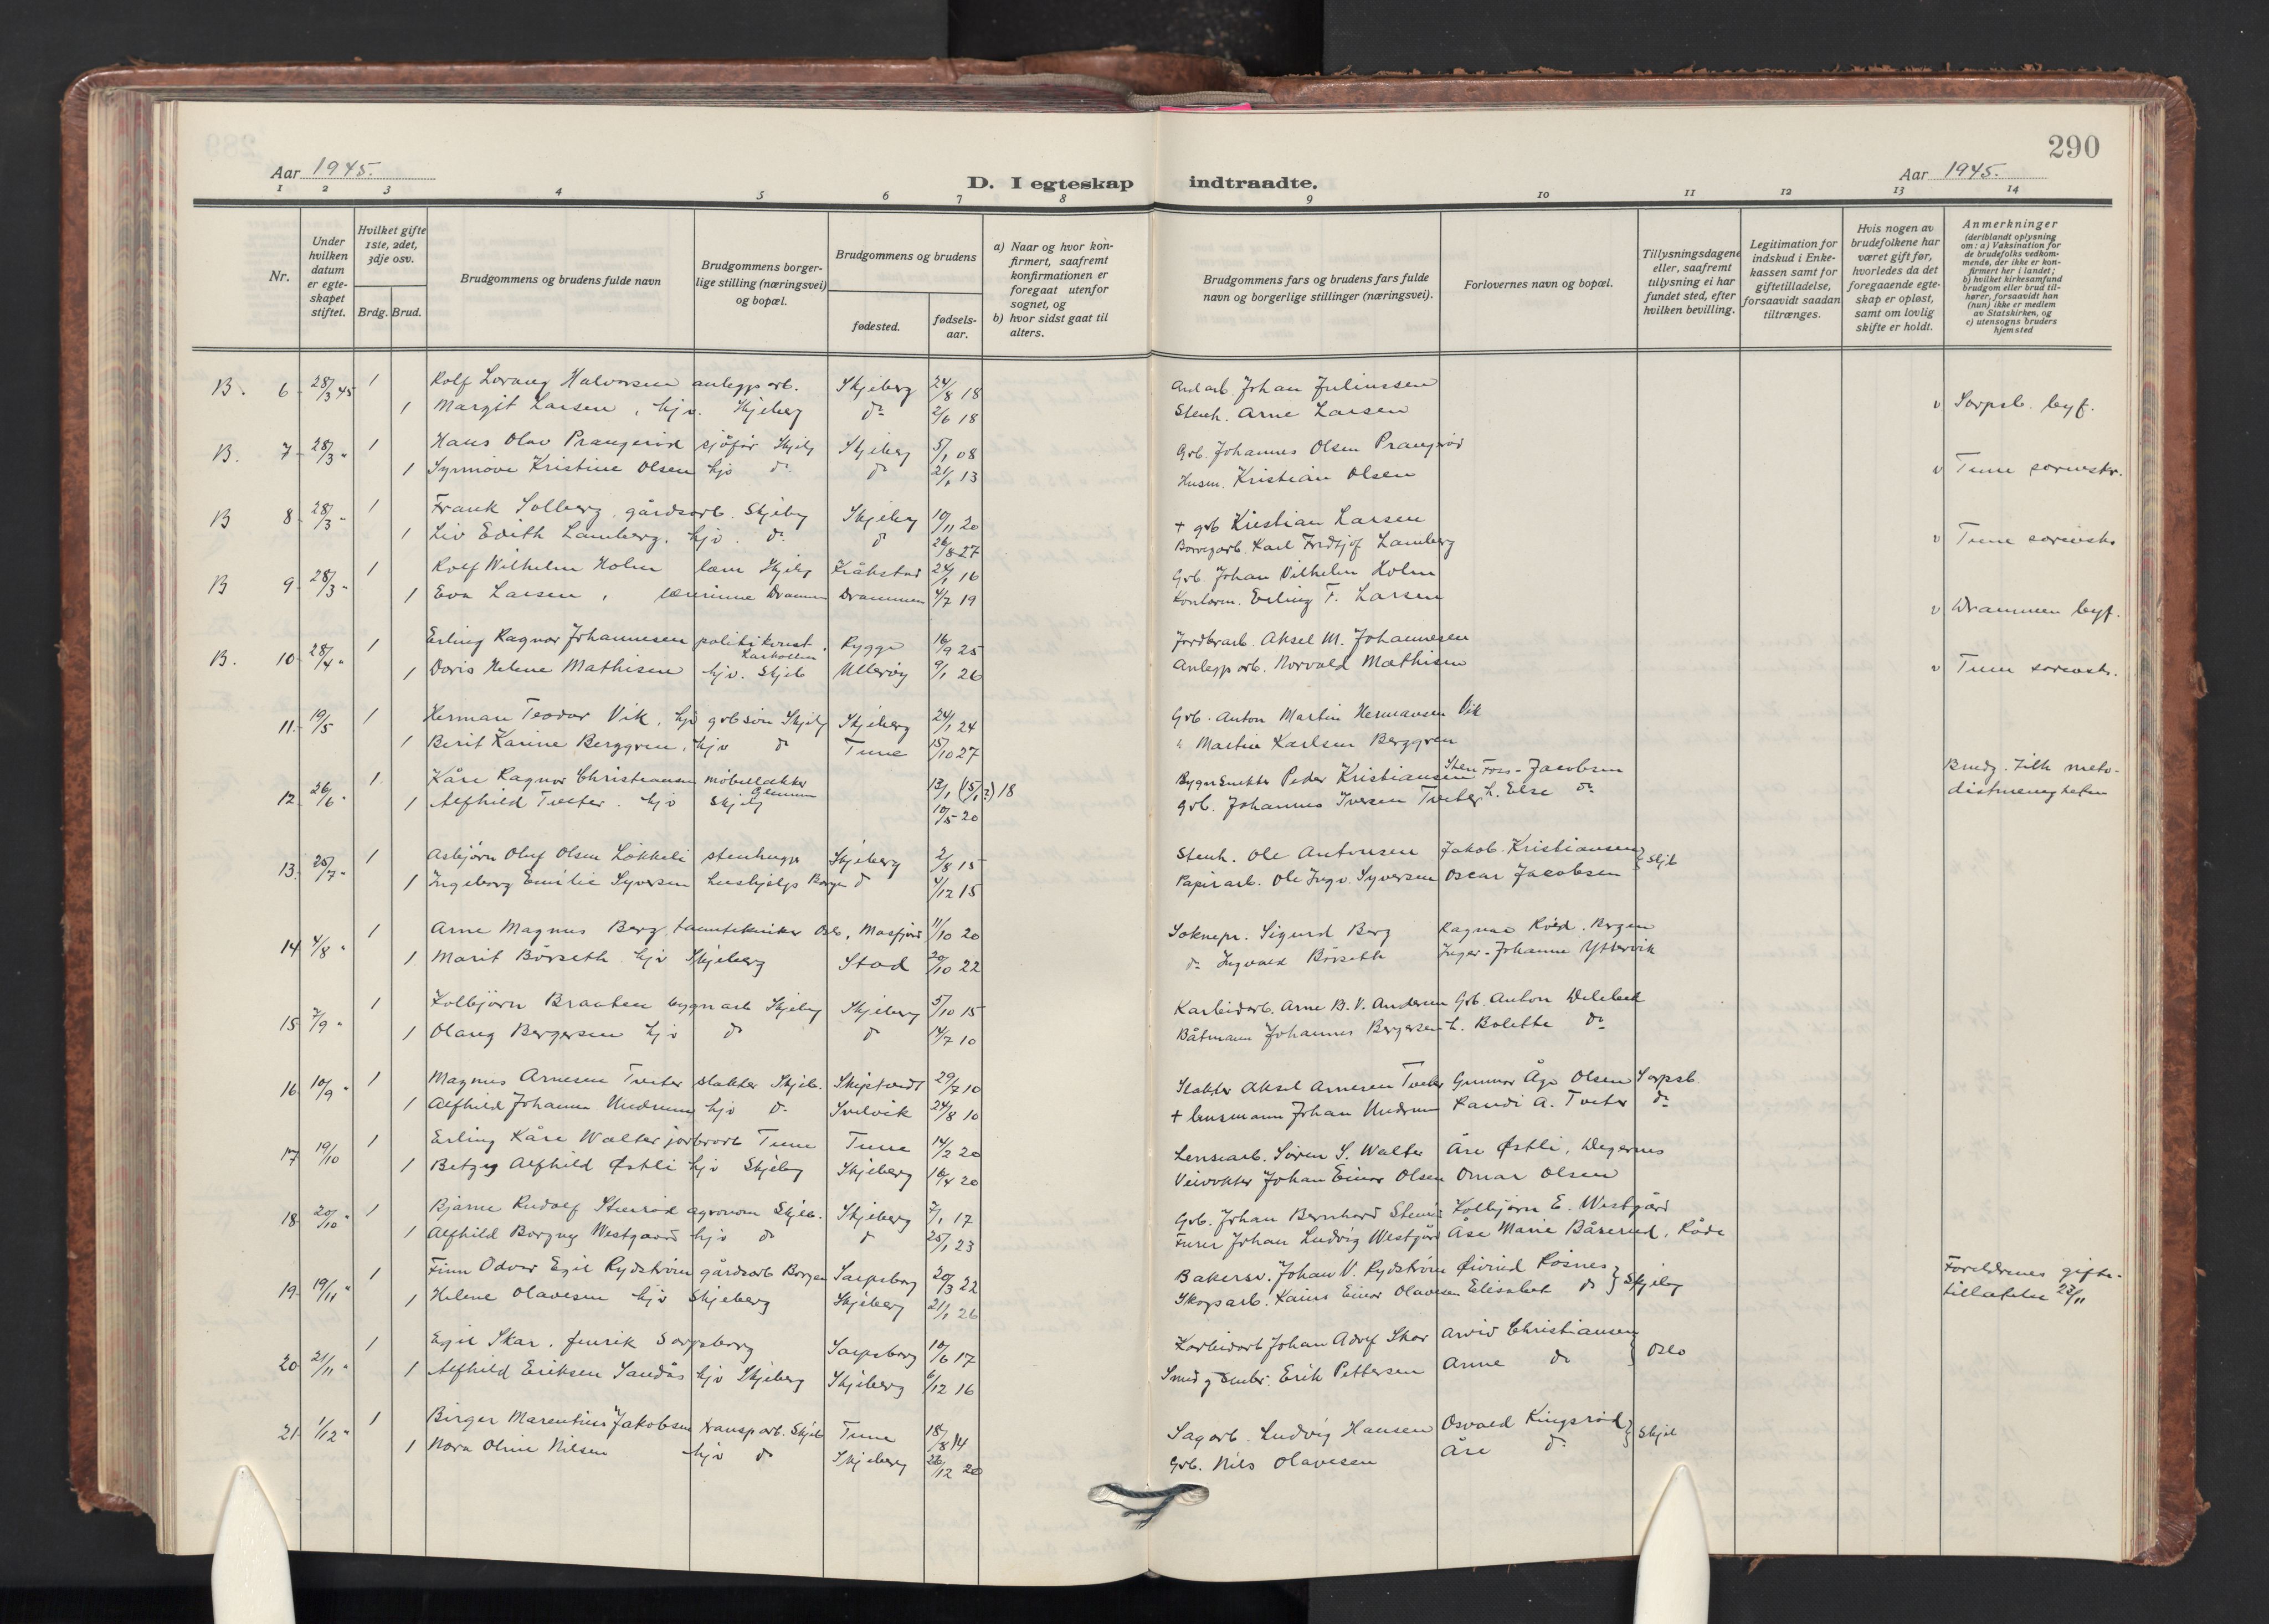 290
Aar 1945.
D. I egteskap indtraadte.
Aar 1945.
1 2 3 4 5 6 7 8 9 10 11 12 13 14
Nr.
Under hvilken datum er egteskapet stiftet.
Hvilket gifte 1ste, 2det, 3dje osv.
Brdg. Brud.
Brudgommens og brudens fulde navn
Brudgommens borgerlige stilling (næringsvei) og bopæl.
Brudgommens og brudens
fødested.
fødselsaar.
a) Naar og hvor konfirmert, saafremt konfirmationen er foregaat utenfor sognet, og
b) hvor sidst gaat til alters.
Brudgommens fars og brudens fars fulde navn og borgerlige stillinger (næringsvei).
Forlovernes navn og bopæl.
Tillysningsdagene eller, saafremt tillysning ei har fundet sted, efter hvilken bevilling.
Legitimation for indskud i Enkekassen samt for giftetilladelse, forsaavidt saadan tiltrænges.
Hvis nogen av brudefolkene har været gift før, hvorledes da det foregaaende egteskap er opløst, samt om lovlig skifte er holdt.
Anmerkninger (deriblandt oplysning om: a) Vaksination for de brudefolks vedkommende, der ikke er konfirmert her i landet; b) hvilket kirkesamfund brudgom eller brud tilhører, forsaavidt han (hun) ikke er medlem av Statskirken, og c) utensogns bruders hjemsted
B. 6 28/3 45 1 Rolf Lorang Halvorsen anleggsarb. Skjeberg 24/8 18 Anl arb Johan Juliussen
1 Margit Larsen, hjv. Skjeberg do 2/6 18 Stenh. Arne Larsen v Sarpsb. byf.
B. 7 28/3 " 1 Hans Olav Prangerød sjöfør Skjebg Skjeberg 5/1 08 Grb. Johannes Olsen Prangerød
1 Synnöve Kristine Olsen hjv do do 21/1 13 Husm. Kristian Olsen v Tune sorenskr.
B 8 28/3 " 1 Frank Solberg gårdsarb. Skjebg Skjeberg 10/11 20 + grb Kristian Larsen
1 Liv Edith Lamberg. hjv. do do 26/8 27 Karl Fredtjof Lamberg v Tune sorensk.
B 9 28/3 " 1 Rolf Wilhelm Holm lærer Skjebg Kråkstad 24/1 16 Grb. Johan Vilhelm Holm
1 Eva Larsen, lærerinne Drammen Drammen 4/7 19 Kontorm. Erling F. Larsen v Drammen byf.
B. 10 28/4 " 1 Erling Ragnar Johannesen politikonst. Larkollen Rygge 16/9 25 Jordbrarb. Aksel M. Johannesen
1 Doris Helene Mathisen hjv. Skjeb Ullerøy 9/1 26 Anleggsarb. Norvald Mathisen v Tune sorensk.
11. 19/5 1 Herman Teodor Vik, hjv grb sön Skjebg Skjeberg 24/1 24 Grb. Anton Martin Hermansen Vik
1 Berit Karine Berggren, hjv do Tune 15/10 27 " Martin Karlsen Berggren
12 26/6 " 1 Kåre Ragnar Christiansen möbelsnekker Glemmen 13/1 (15/1?) 18 Bygnsnekker Peder Kristiansen Sten Foss-Jacobsen Brudg. tilh. metodistmenigheten
1 Alfhild Tveter. hjv Skjebg 10/5 20 grb. Johannes Iversen Tveter h. Else do
13. 25/7 " 1 Asbjörn Oluf Olsen Lökkeli stenhugger Skjeberg 2/8 15 Stenh. Ole Antonsen Jakob Kristiansen } Skjb
1 Ingeborg Emilie Syversen hushjelp Borgen do 4/12 15 Papirarb. Ole Ingv. Syversen Oscar Jacobsen
14 4/8 " 1 Arne Magnus Berg, tanntekniker Oslo, Masfjord 11/10 20 Soknepr. Sigurd Berg Ragnar Röed. Bergen
1 Marit Börseth hjv Skjeberg Stod 20/10 22 do Ingvald Börseth Inger-Johanne Yttervik
15 7/9 " 1 Kolbjörn Braaten bygnarb Skjebg Skjeberg 5/10 15 Karbidarb. Arne B. V. Andersen Grb. Anton Delebek
1 Olaug Bergersen hjv do do 14/7 10 Båtmann Johannes Bergersen h. Bolette do
16 10/9 " 1 Magnus Arnesen Tveter slakter Skjeb. Skiptvedt 29/7 10 Slakter Aksel Arnesen Tveter Gunnar Åge Olsen Sarpsb.
1 Alfhild Johanne Undrum hjv do Svelvik 24/8 10 + lensmann Johan Undrum Randi A. Tveter do
17 19/10 1 Erling Kåre Walter jordbrarb Tune Tune 14/2 20 Lensearb. Sören S. Walter Åre Østli, Degernes
1 Betzy Alfhild Østli hjv Skjeberg Skjeberg 16/4 20 Veivokter Johan Einar Olsen Omar Olsen
18 20/10 " 1 Bjarne Rudolf Stenröd agronom Skjeb. Skjeberg 7/1 17 Grb. Johan Bernhard Stenröd Kolbjörn E. Westgård
1 Alfhild Borgny Westgaard hjv do do 25/1 23 Furer Johan Ludvig Westgård Åse Marie Bårerud, Råde
19. 19/11 " 1 Finn Odvar Egil Rydström gårdsarb Borgen Sarpsborg 20/3 22 Bakersv. Johan V. Rydström Øivind Rösnes } Skjebg Foreldrenes gifte-
1 Helene Olavesen hjv Skjeberg Skjeberg 21/1 26 Skogsarb. Einar Olavesen Elisabet do tillatelse 23/11
20 21/11 " 1 Egil Skar. Sarpsborg Sarpsborg 10/6 17 Karbidarb Johan Adolf Skar Arvid Christiansen } Oslo
1 Alfhild Eriksen Sandås hjv Skjeberg Skjeberg 6/12 16 Smed g Erik Pettersen Anne do
21 1/12 " 1 Birger Marentius Jakobsen transparb. Skjeb Tune 18/8 14 Sagarb. Ludvig Hansen Osvald Kingsröd } Skjeb
1 Nora Oline Nilsen hjv do Skjeberg 26/12 20 Grb. Nils Olavesen Åre do